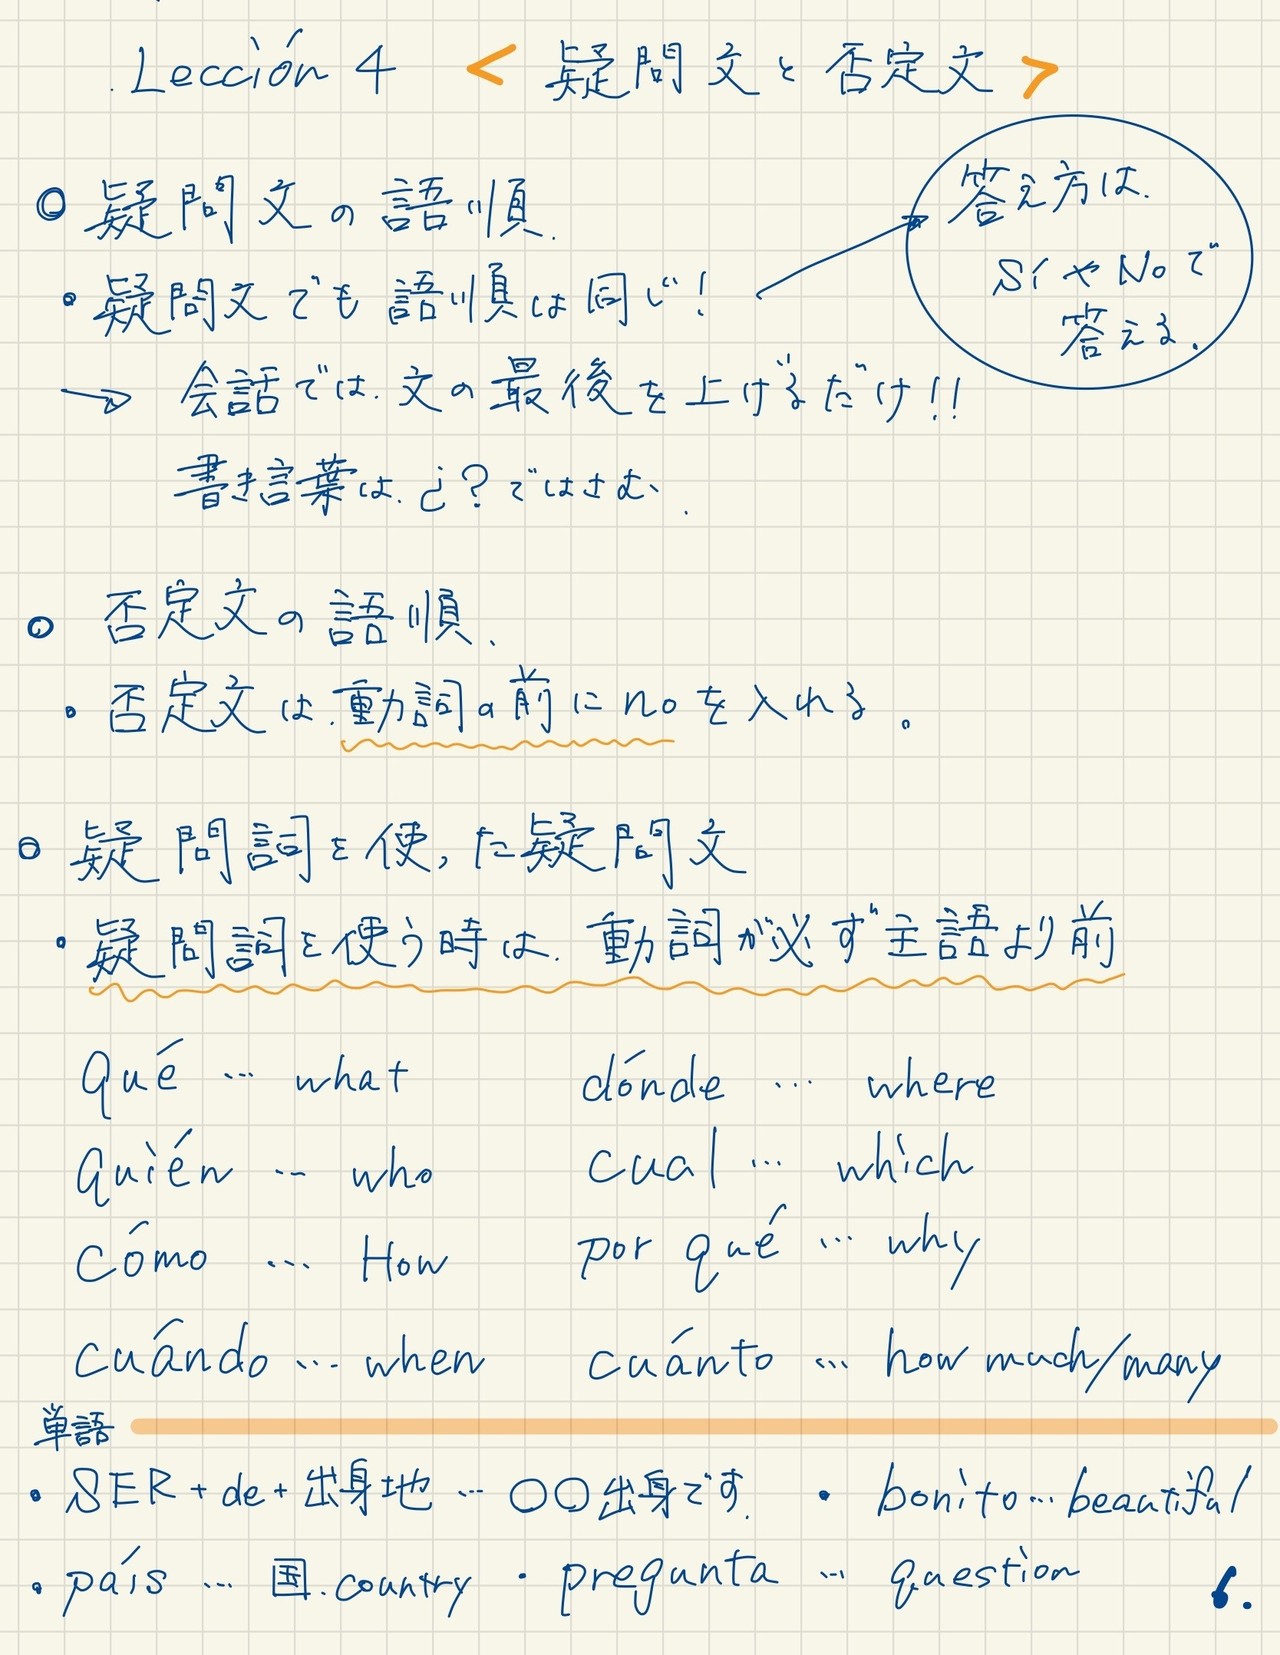 Lección 4 < 疑問文と否定文 >
◎ 疑問文の語順.
・疑問文でも語順は同じ!
答え方は.
SíやNoで
答える.
→ 会話では.文の最後を上げるだけ!!
書き言葉は.¿?ではさむ.
◎ 否定文の語順.
・否定文は.動詞の前にnoを入れる。
◎ 疑問詞を使った疑問文
・疑問詞を使う時は.動詞が必ず主語より前
Qué … what
dónde … where
Quién … who
cual … which
Cómo … How
por qué … why
cuándo … when
cuánto … how much/many
単語
・SER+de+出身地 … 〇〇出身です.
・bonito…beautiful
・país … 国.country
・pregunta … question
6.